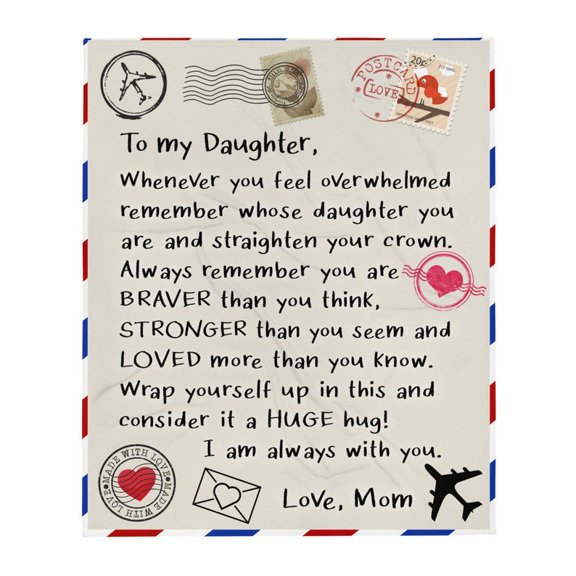 20c
POSTCARD
LOVE
To my Daughter,
Whenever you feel overwhelmed
remember whose daughter you
are and straighten your crown.
Always remember you are
BRAVER than you think,
STRONGER than you seem and
LOVED more than you know.
Wrap yourself up in this and
consider it a HUGE hug!
I am always with you.
MADE WITH LOVE • MADE WITH LOVE •
Love, Mom